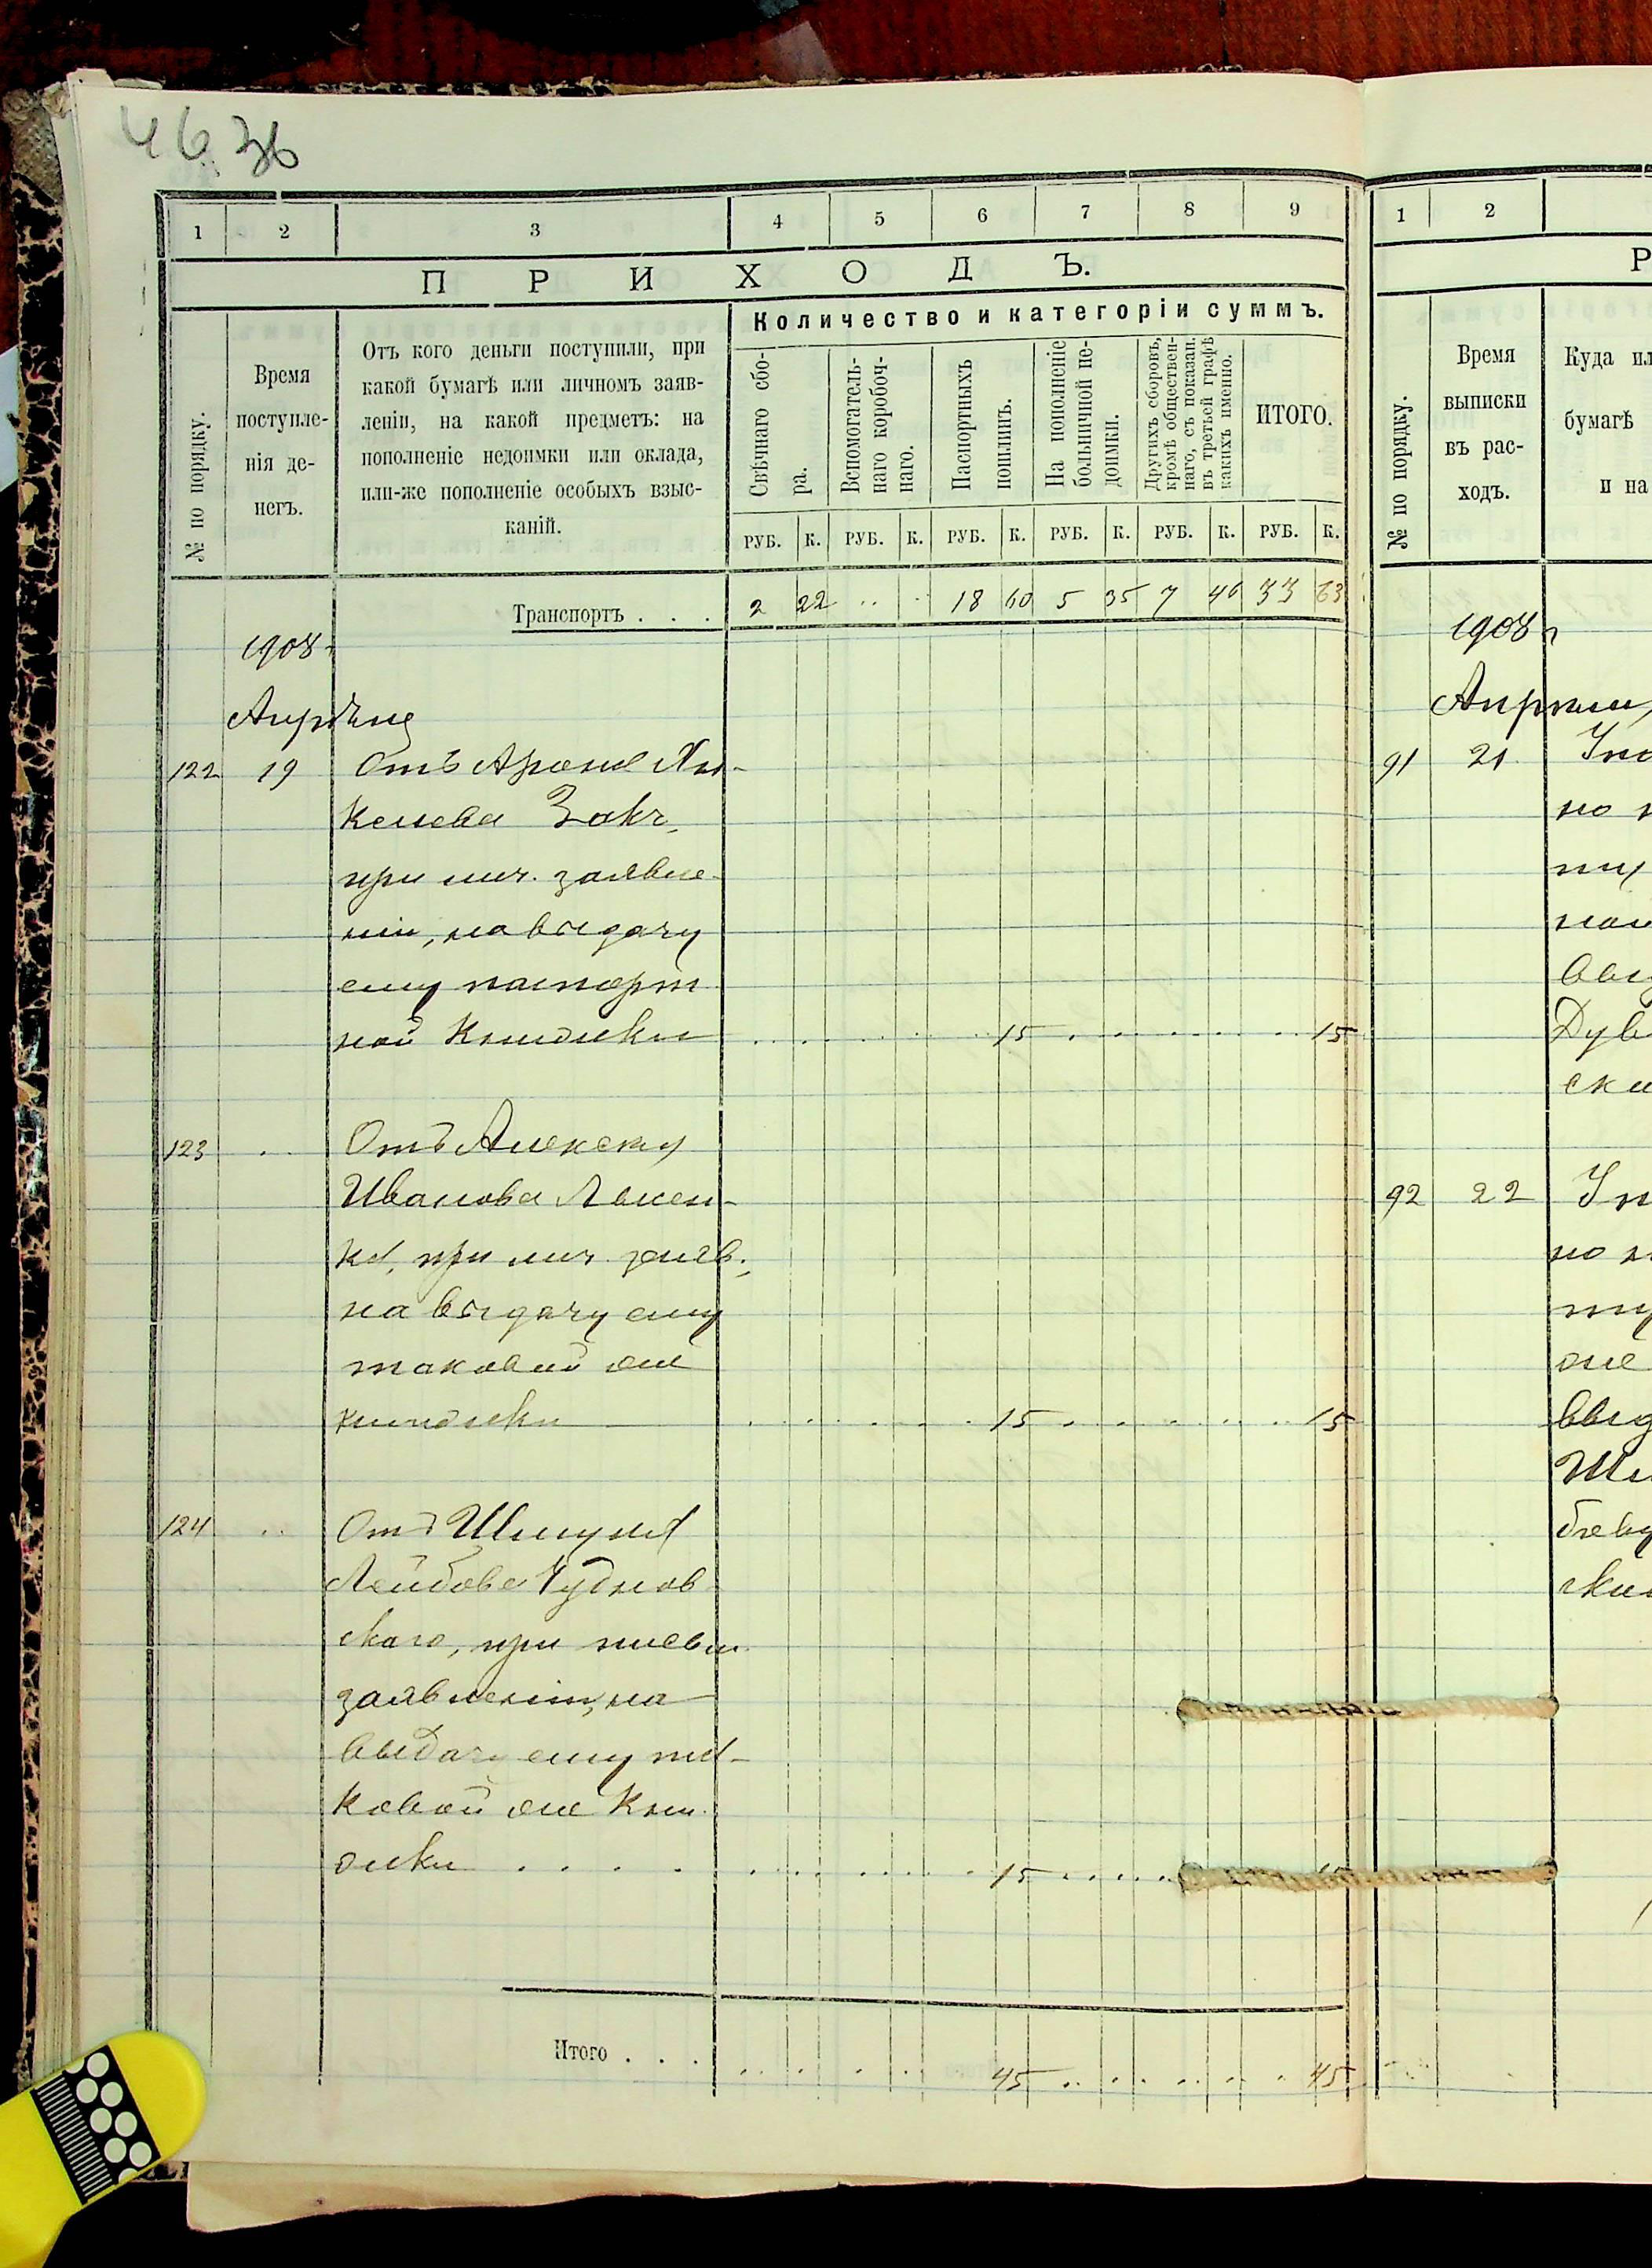 46. 36
1 2 3 4 5 6 7 8 9
ПРИХОДЪ.
№ по порядку.
Время
поступле-
нія де-
негъ.
Отъ кого деньги поступили, при
какой бумагѣ или личномъ заяв-
леніи, на какой предметъ: на
пополненіе недоимки или оклада,
или-же пополненіе особыхъ взыс-
каній.
Количество и категоріи суммъ.
Свѣчнаго сбо-
ра.
Вспомогатель-
наго коробоч-
наго.
Паспортныхъ
пошлинъ.
На пополненіе
больничной не-
доимки.
Другихъ сборовъ,
кромѣ обществен-
наго, съ показан.
въ третьей графѣ
какихъ именно.
ИТОГО.
РУБ. К. РУБ. К. РУБ. К. РУБ. К. РУБ. К. РУБ. К.
Транспортъ . . . 2 22 .. . 18 60 5 35 7 46 33 63
1908
Апрѣля
122 19 Отъ Арона Хы-
келева Закъ,
при лич. заявле-
ніи, на выдачу
ему паспорт
ной книжки 15 15
123 .. Отъ Алексѣя
Иванова
ка, при лич. заяв.,
на выдачу ему
таковой же
книжки 15 15
124 .. Отъ Шмуля
Лейбова Чуднов
скаго, при письм.
заявленіи, на
выдачу ему та-
ковой же кни
жки . . . . 15
Итого . . . 45 45
1 2
Р
№ по порядку.
Время
выписки
въ рас-
ходъ.
Куда ил
бумагѣ
и на
1908 г
Апрѣля
91 21
но
Дув
ски
92 22
но
же
выд